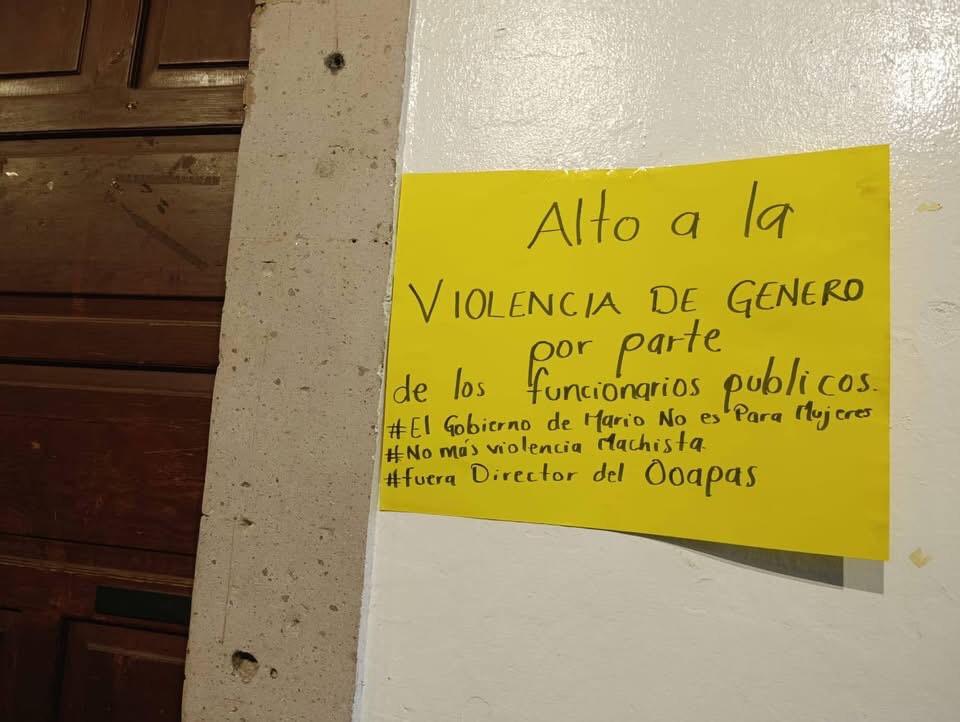 Alto a la
VIOLENCIA DE GENERO
por parte
de los funcionarios publicos.
#El Gobierno de Mario No es Para Mujeres
#No más violencia Machista.
#fuera Director del Ooapas